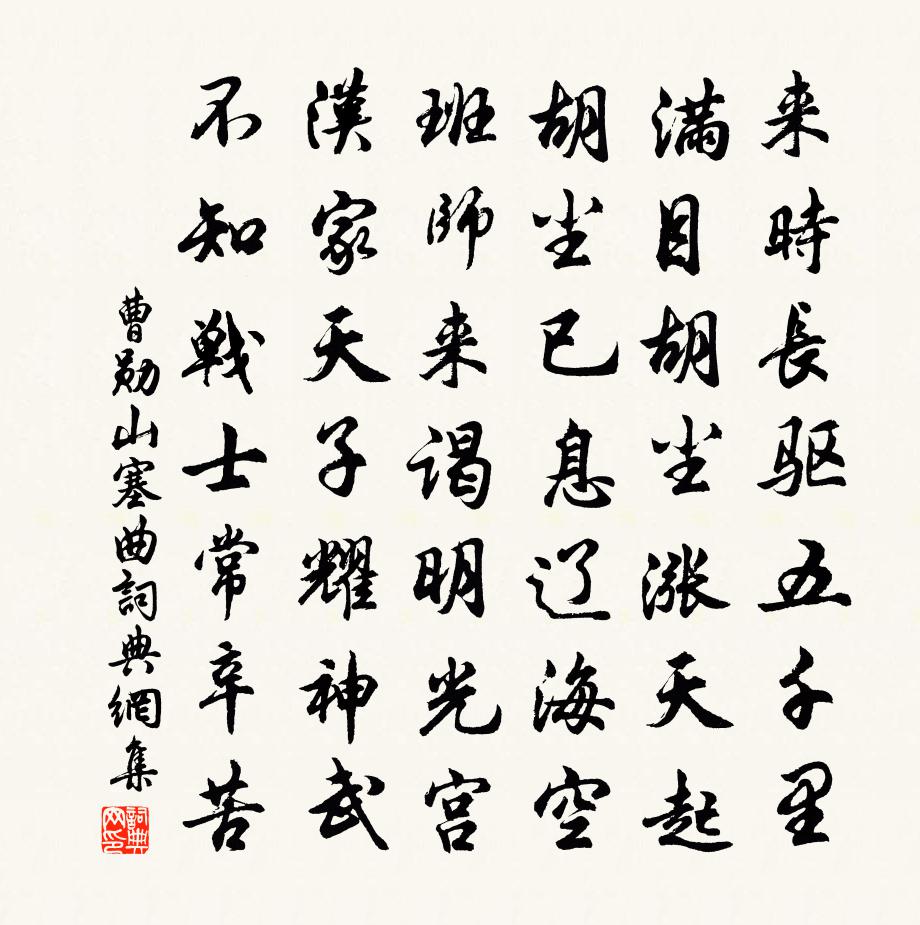 来時長驱五千里
满目胡尘涨天起
胡尘已息辽海空
班師来谒明光宫
漢家天子耀神武
不知戦士常辛苦
曹勛山塞曲詞典網集
詞典网印